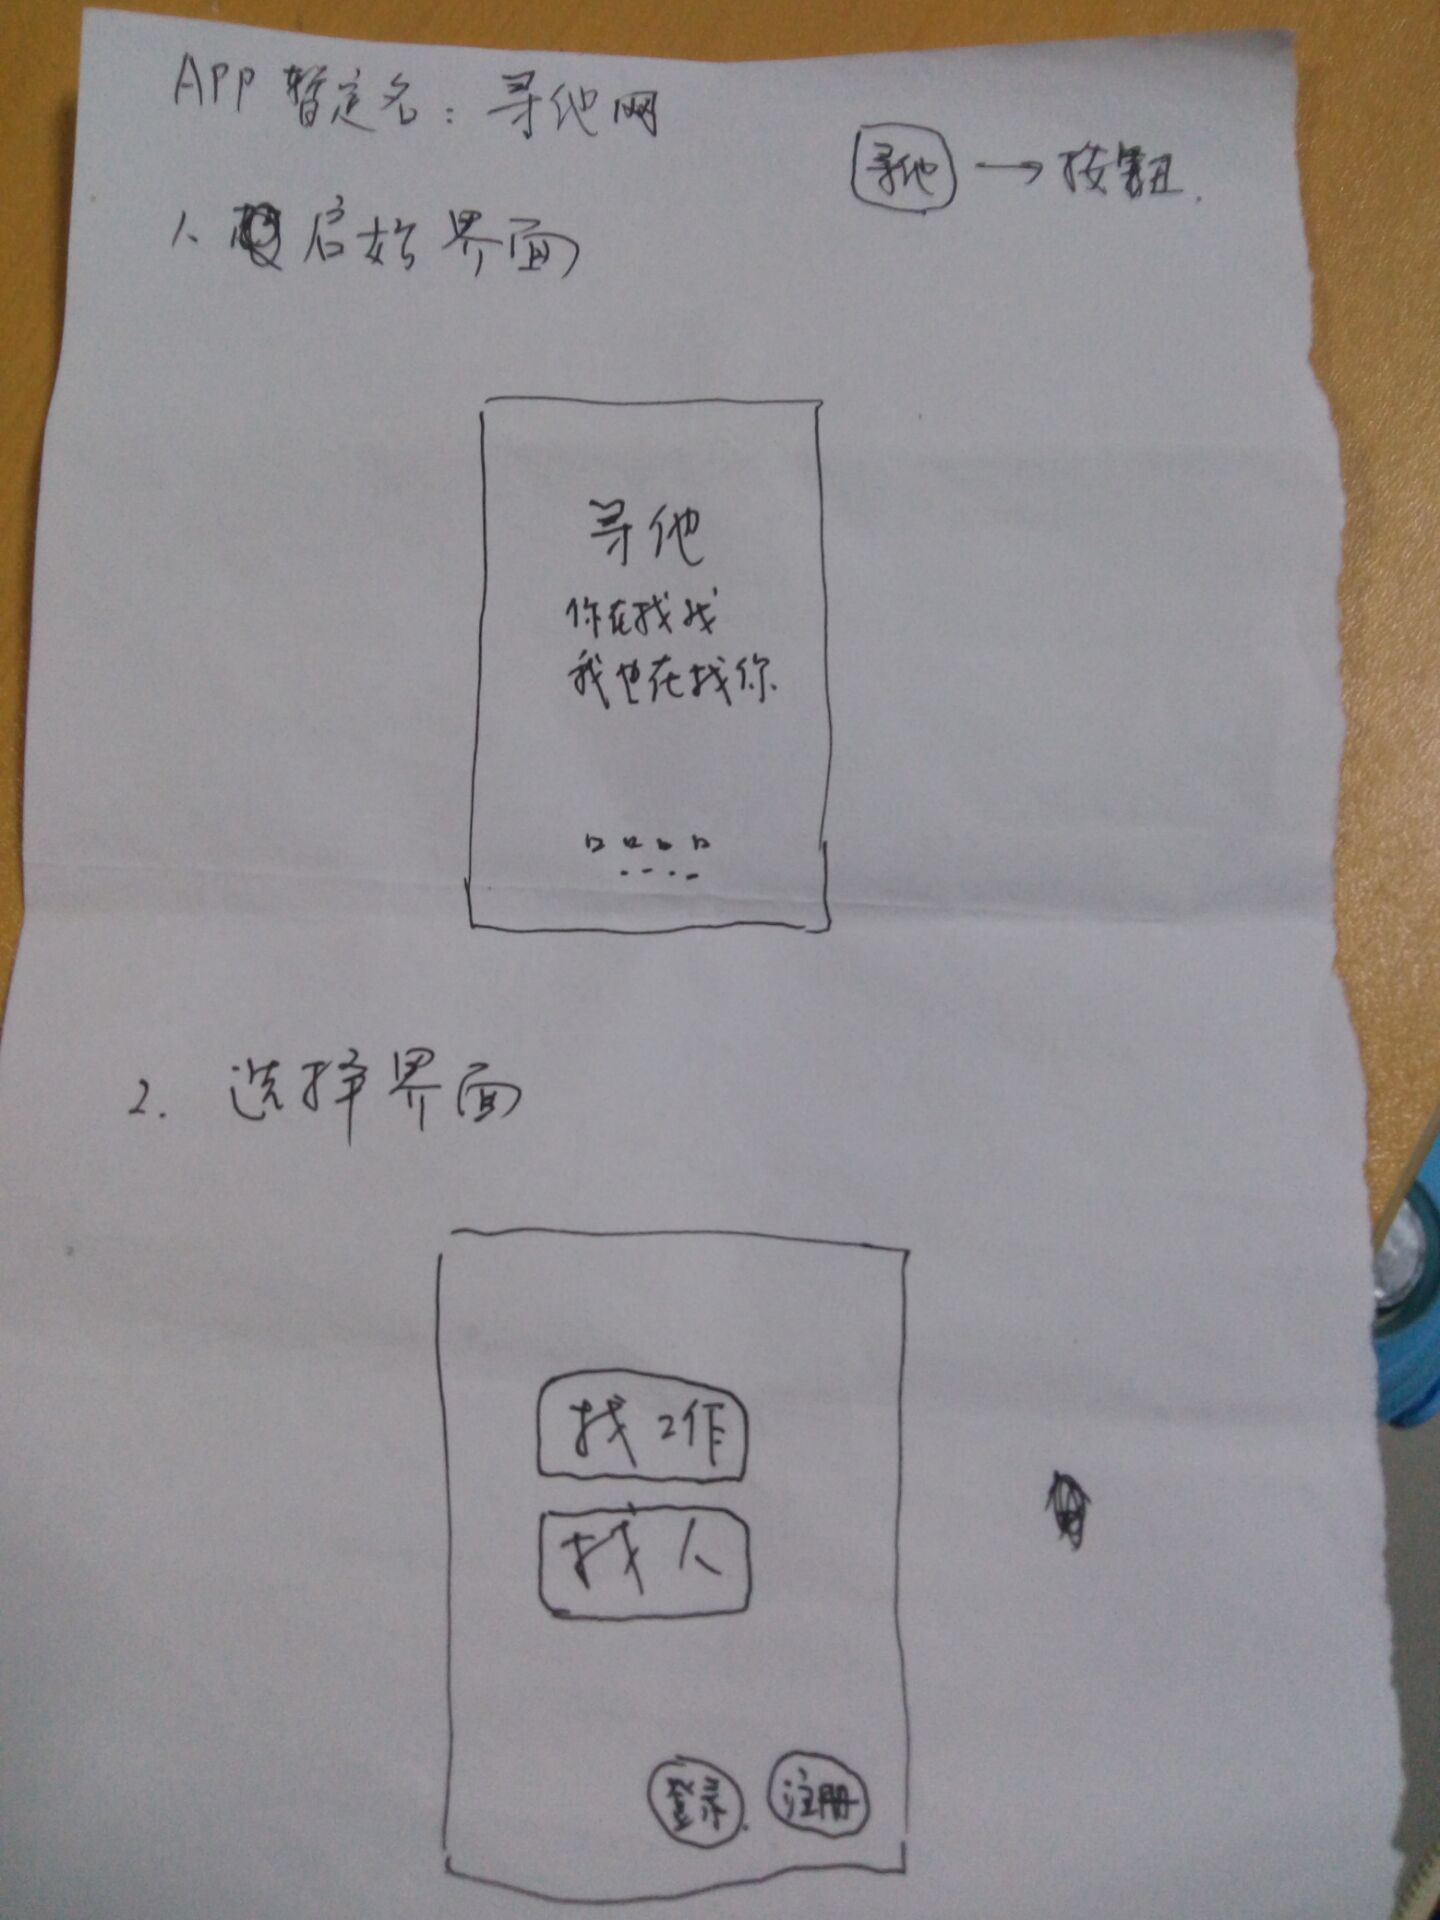 APP 暂定名：寻他网
寻他 → 按钮.
1. 启始界面
寻他
你在找我
我也在找你
2. 选择界面
找工作
找人
登录. 注册